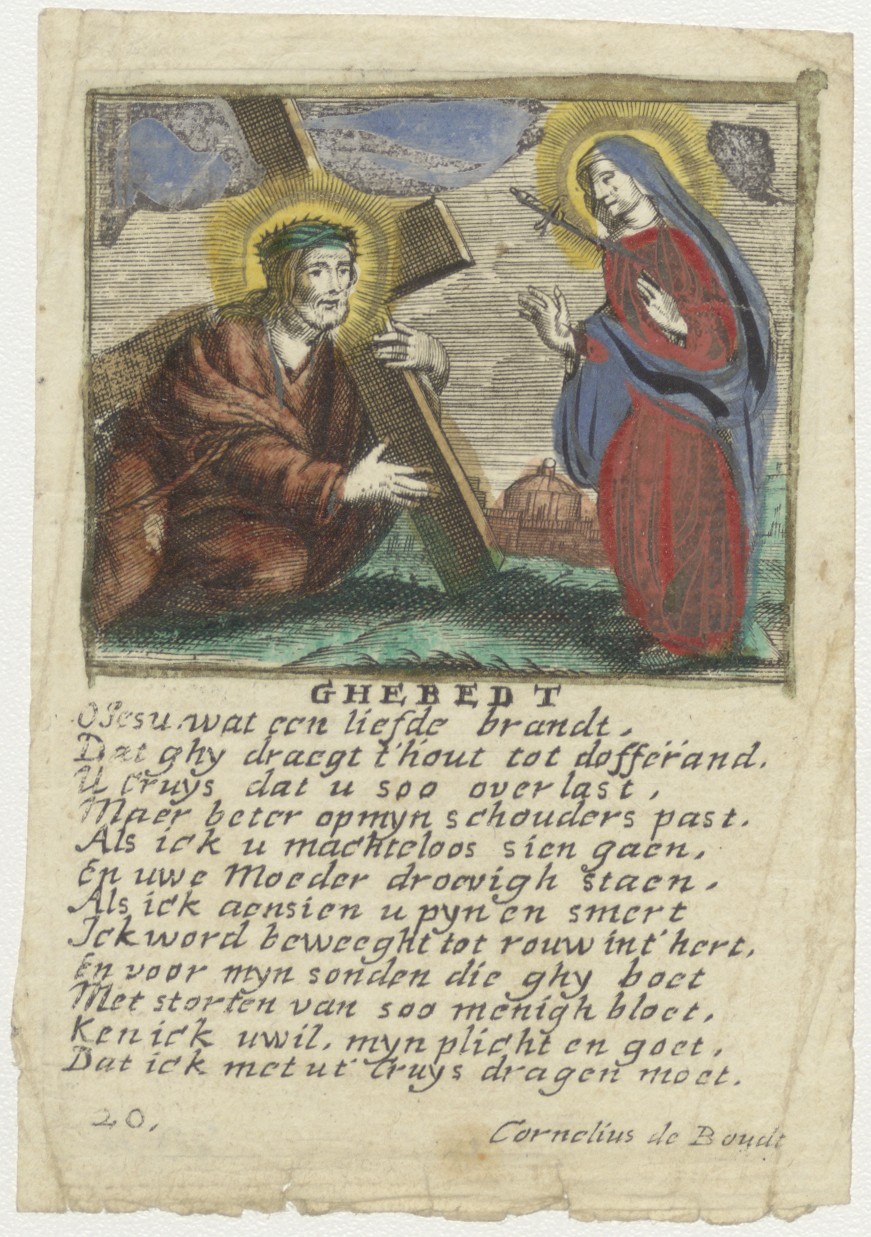 GHEBEDT
O Jesu wat een liefde brandt,
Dat ghy draegt t'hout tot dofferand.
U Cruys dat u soo overlast,
Maer beter op myn schouders past.
Als ick u machteloos sien gaen,
En uwe Moeder droevigh staen,
Als ick aensien u pyn en smert
Ick word beweeght tot rouw int' hert,
En voor myn sonden die ghy boet
Met storten van soo menigh bloet,
Ken ick uwil, myn plicht en goet,
Dat ick met ut' Cruys dragen moet.
20,
Cornelius de Boudt